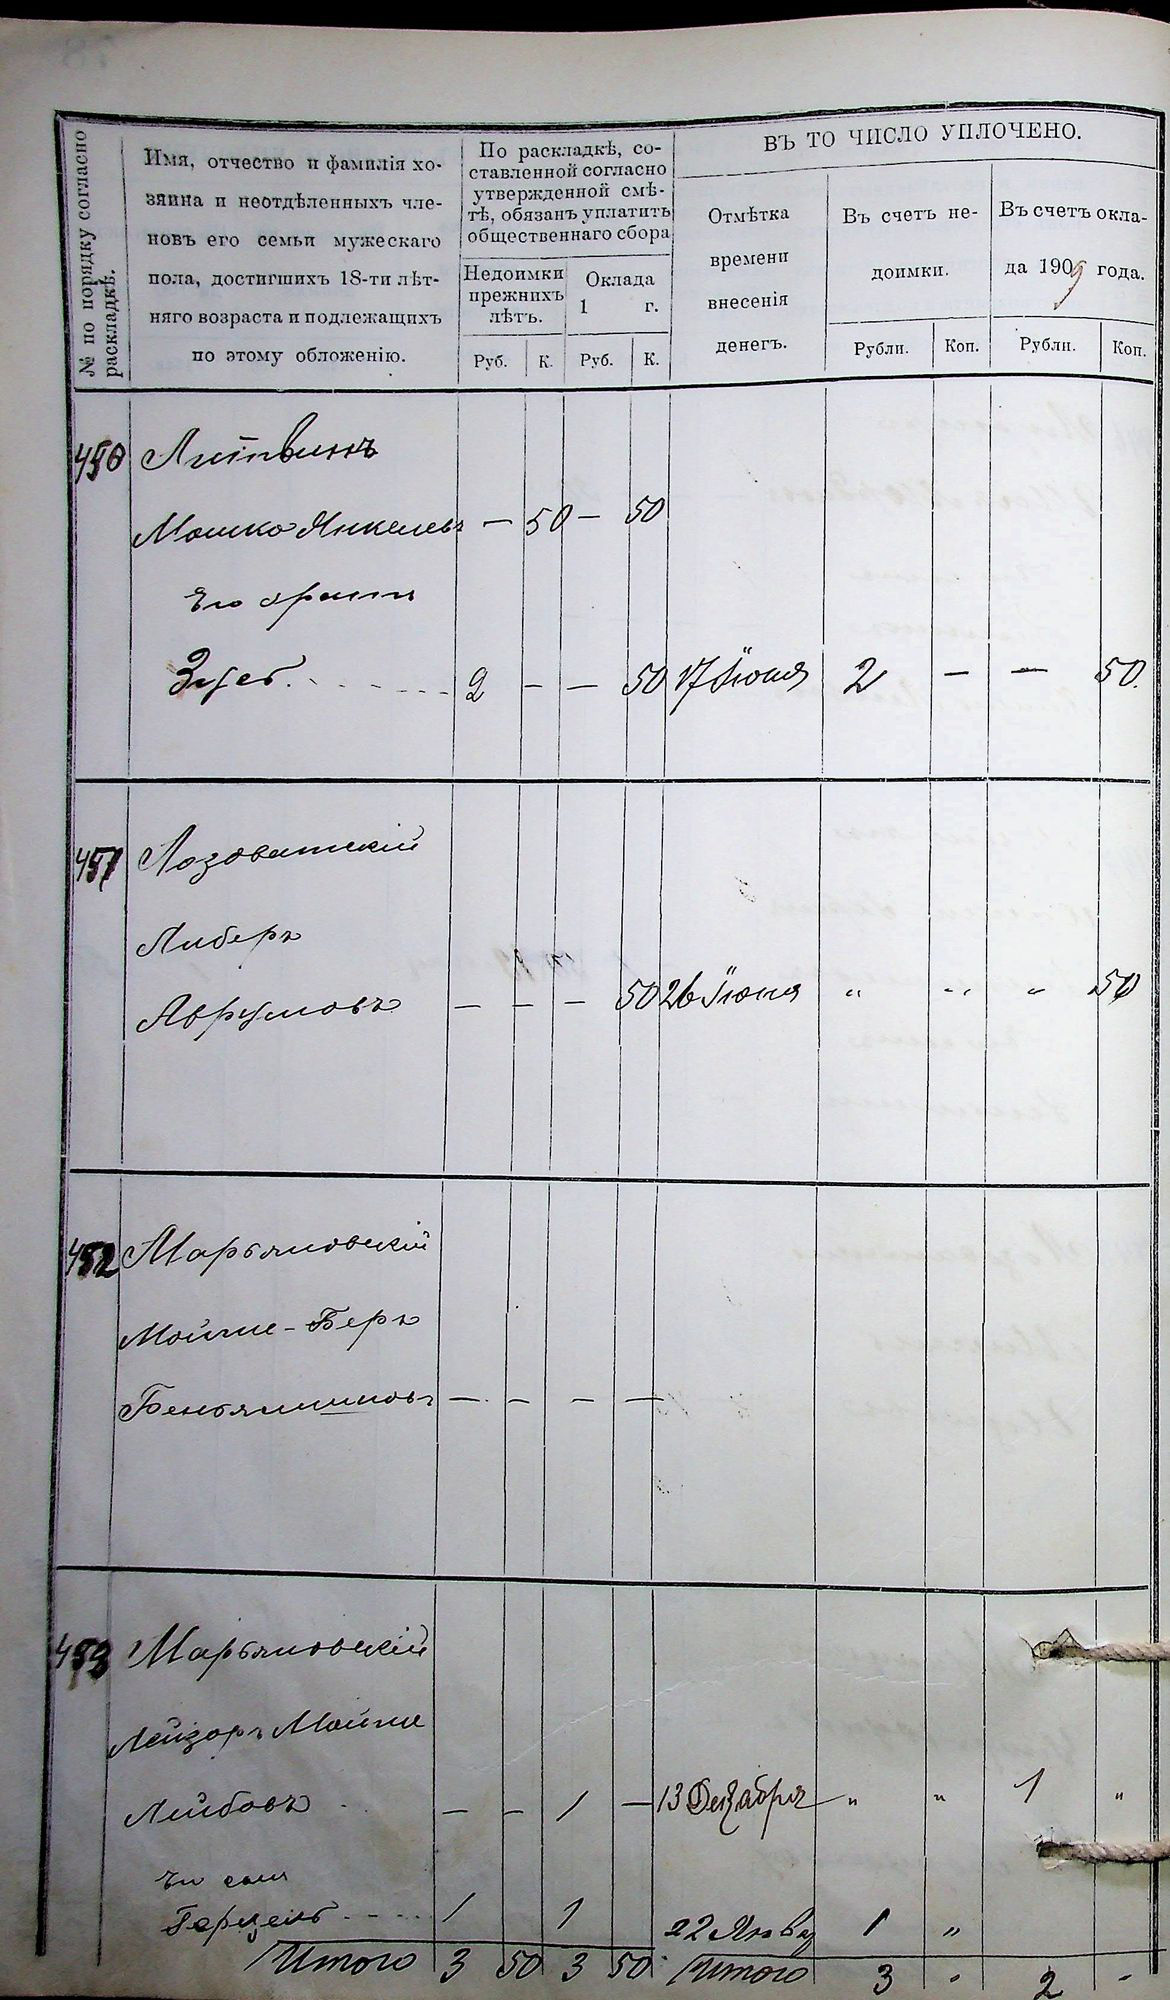 № по порядку согласно раскладкѣ.
Имя, отчество и фамилія хо-
зяина и неотдѣленныхъ чле-
новъ его семьи мужескаго
пола, достигшихъ 18-ти лѣт-
няго возраста и подлежащихъ
по этому обложенію.
По раскладкѣ, со-
ставленной согласно
утвержденной смѣ-
тѣ, обязанъ уплатить
общественнаго сбора
Недоимки
прежнихъ
лѣтъ.
Оклада
1 г.
Руб. К. Руб. К.
ВЪ ТО ЧИСЛО УПЛОЧЕНО.
Отмѣтка
времени
внесенія
денегъ.
Въ счетъ не-
доимки.
Въ счетъ окла-
да 1909 года.
Рубли. Коп. Рубли. Коп.
450 Литвинъ
Мошко Янкелевъ — 50 — 50
Его братъ
2 — — 50 17 Іюня 2 — — 50.
451 Лозоватскій
Либеръ
Аврумовъ — — — 50 26 Іюня „ „ „ 50
452 Марьяновскій
Мойше-Беръ
Беньяминовъ — — — —
453 Марьяновскій
Лейзоръ Мойше
Лейбовъ — — 1 — 13 Декабря „ „ 1 „
Его сынъ
Герцель 1 1 22 Янва 1 „
Итого 3 50 3 50 Итого 3 - 2 -